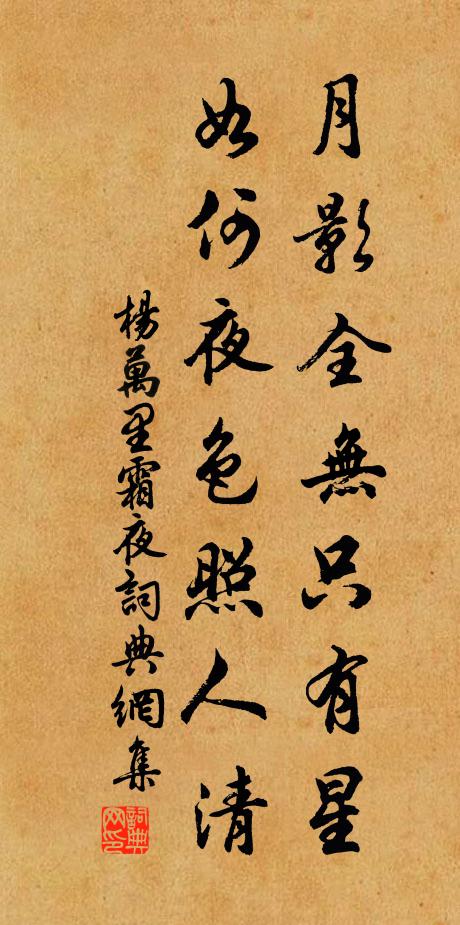 月影全無只有星
如何夜色照人清
楊萬里霜夜詞典網集
詞典网印